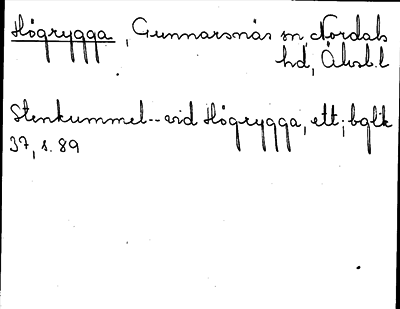 Högrygga, Gunnarsnäs sn, Nordals
hd, Älvsb.l
Stenkummel -- vid Högrygga, ett; bglk
37, s. 89